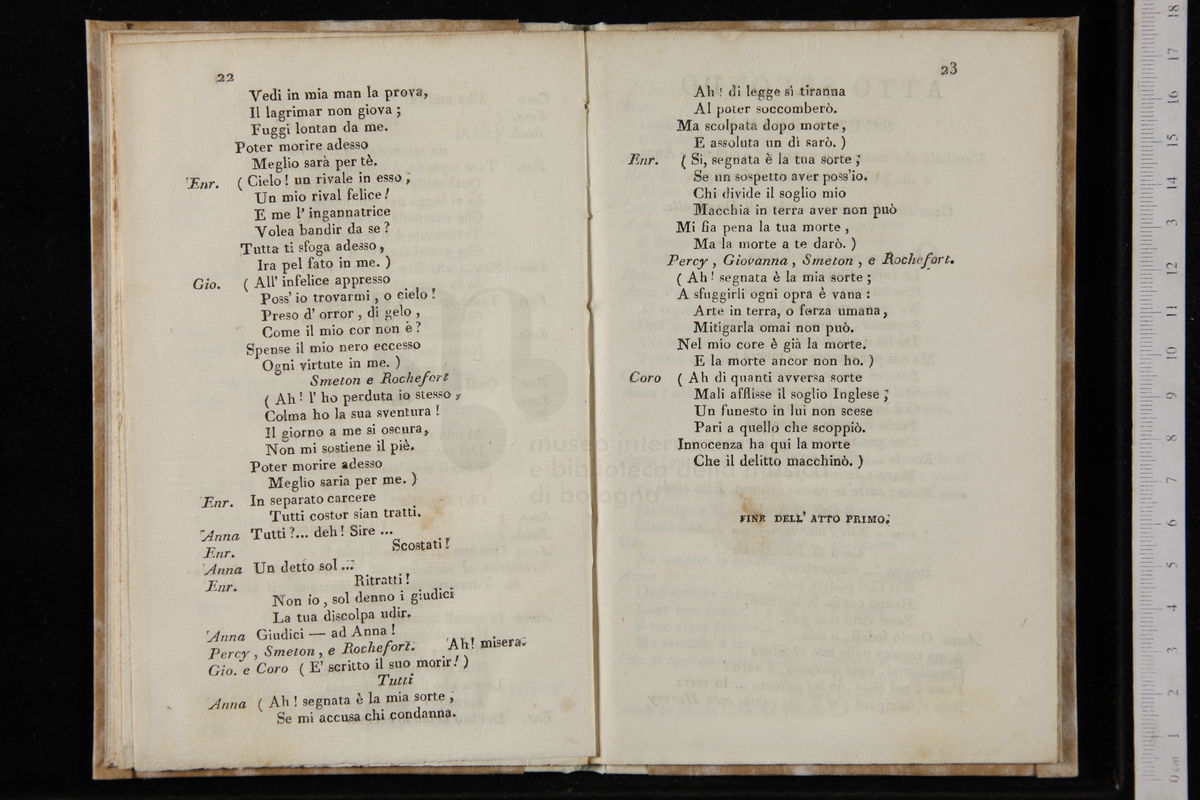 22
Vedi in mia man la prova,
Il lagrimar non giova ;
Fuggi lontan da me.
Poter morire adesso
Meglio sarà per tè.
Enr. ( Cielo ! un rivale in esso ,
Un mio rival felice !
E me l' ingannatrice
Volea bandir da se ?
Tutta ti sfoga adesso ,
Ira pel fato in me. )
Gio. ( All' infelice appresso
Poss' io trovarmi , o cielo !
Preso d' orror , di gelo ,
Come il mio cor non è ?
Spense il mio nero eccesso
Ogni virtute in me. )
Smeton e Rochefort
( Ah ! l' ho perduta io stesso ,
Colma ho la sua sventura !
Il giorno a me si oscura ,
Non mi sostiene il piè.
Poter morire adesso
Meglio saria per me. )
Enr. In separato carcere
Tutti costor sian tratti.
Anna Tutti ?... deh ! Sire ...
Enr. Scostati !
Anna Un detto sol ...
Enr. Ritratti !
Non io , sol denno i giudici
La tua discolpa udir.
Anna Giudici — ad Anna !
Percy , Smeton , e Rochefort. Ah ! misera.
Gio. e Coro ( E' scritto il suo morir ! )
Tutti
Anna ( Ah ! segnata è la mia sorte ,
Se mi accusa chi condanna.
23
Ah ! di legge sì tiranna
Al poter soccomberò.
Ma scolpata dopo morte ,
E assoluta un dì sarò. )
Enr. ( Si, segnata è la tua sorte ;
Se un sospetto aver poss'io.
Chi divide il soglio mio
Macchia in terra aver non può
Mi fia pena la tua morte ,
Ma la morte a te darò. )
Percy , Giovanna , Smeton , e Rochefort.
( Ah ! segnata è la mia sorte ;
A sfuggirli ogni opra è vana :
Arte in terra, o forza umana ,
Mitigarla omai non può.
Nel mio core è già la morte.
E la morte ancor non ho. )
Coro ( Ah di quanti avversa sorte
Mali afflisse il soglio Inglese ;
Un funesto in lui non scese
Pari a quello che scoppiò.
Innocenza ha qui la morte
Che il delitto macchinò. )
FINE DELL' ATTO PRIMO.
museo inter
e biblioteca della musica
di bologna
0 cm 1 2 3 4 5 6 7 8 9 10 11 12 13 14 15 16 17 18